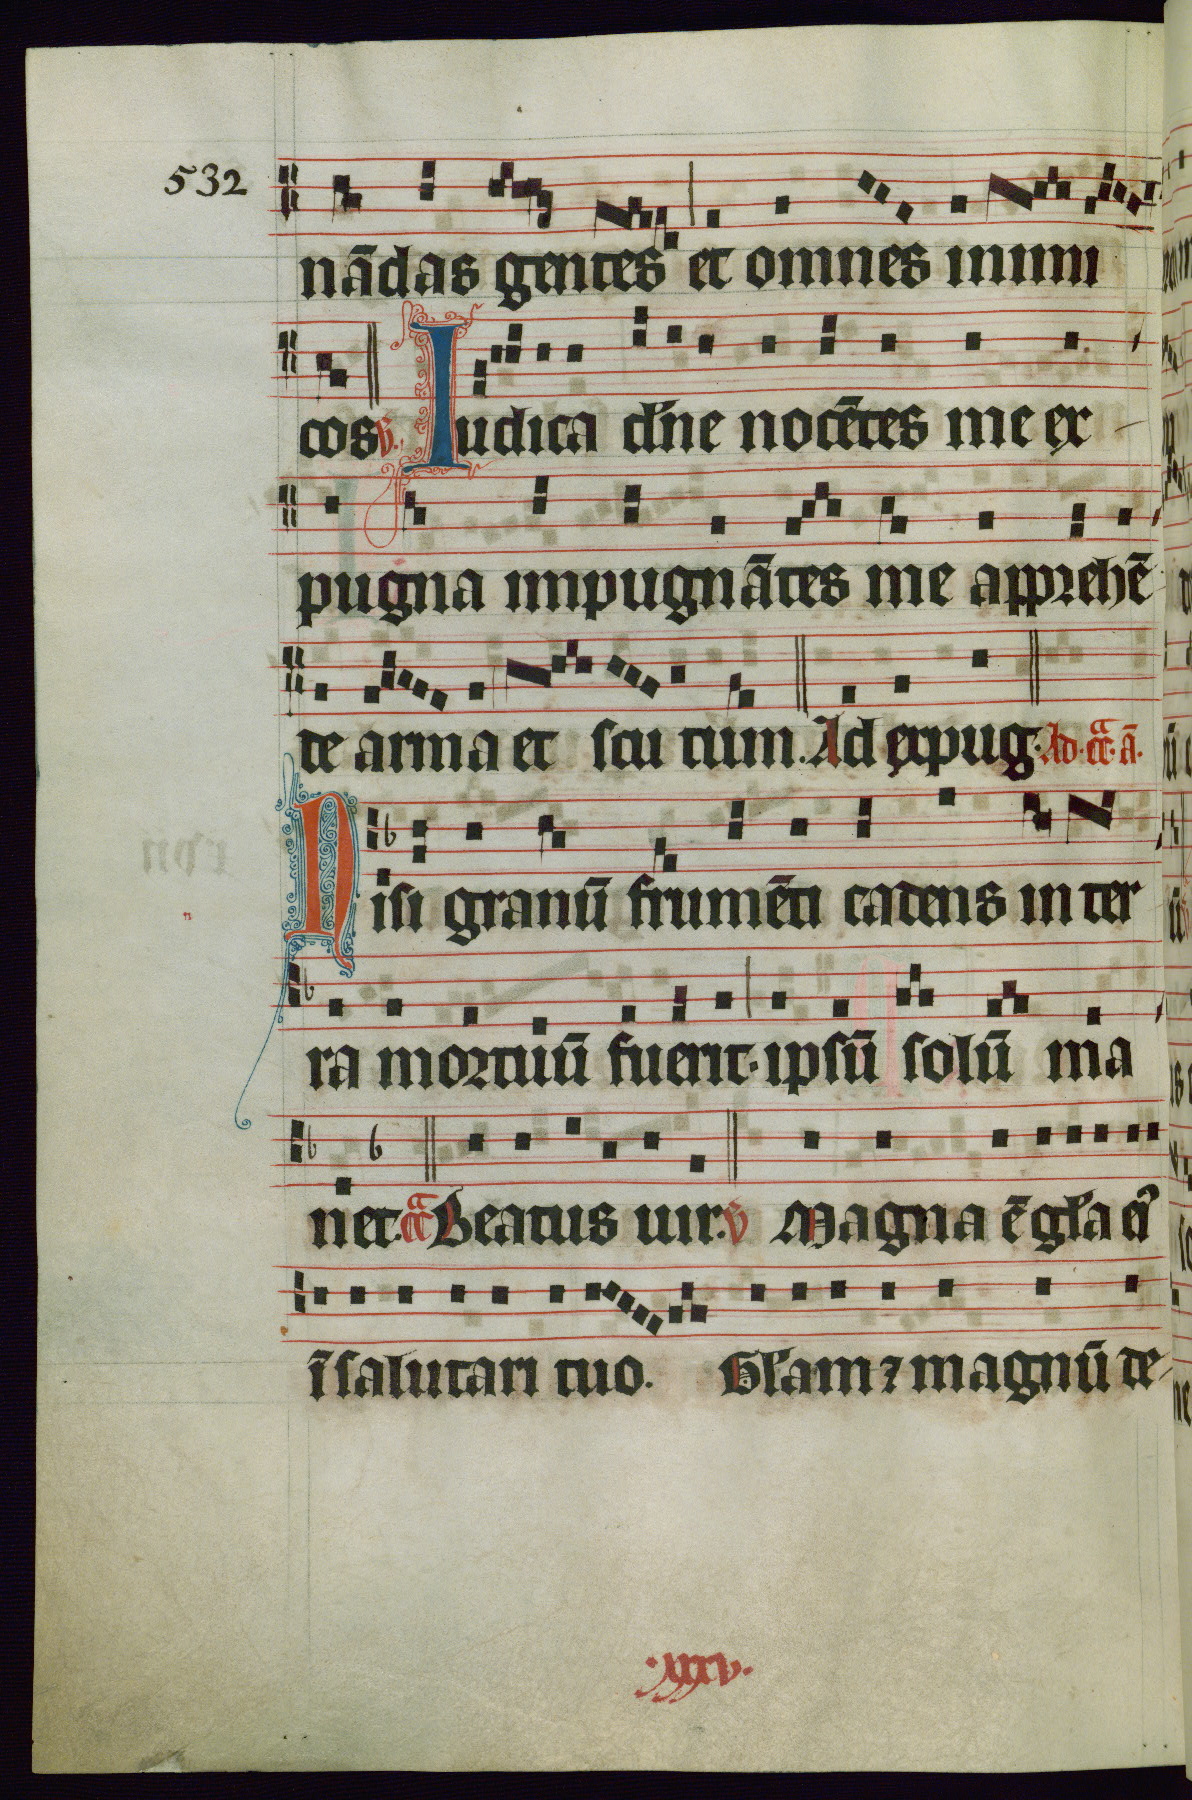 532
nādas gentes et omnes inimi
cos ℣. Iudica dn̄e nocētes me ex
pugna impugnātes me apprehē
te arma et scu tum. Ad expug. Ad. cͣc. ā.
Nisi granū frumēti cadens in ter
n
ra mortuū fuerit. ipsū solū ma
net. Beatus uir. ℣ Magna ē gl̄a eiꝰ
ī salutari tuo. Gl̄am ⁊ magnū de
.xxxv.